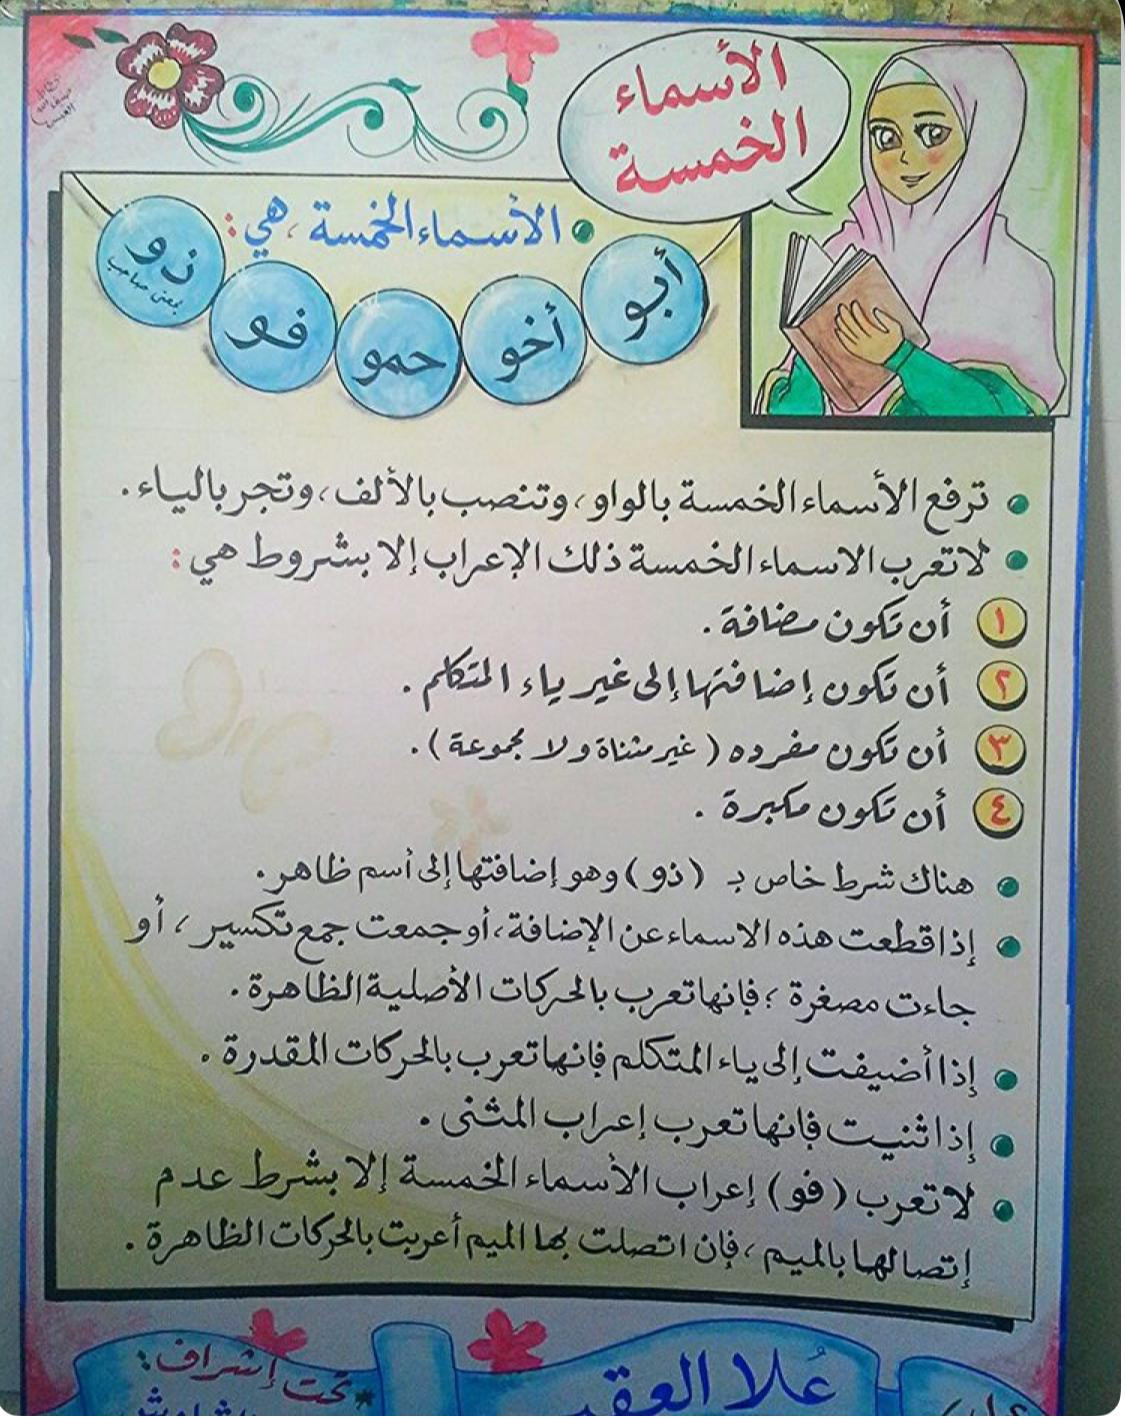 الأسماء
الخمسة
الأسماء الخمسة ، هي :
أبو
أخو
حمو
فو
ذو
بمعنى صاحب
ترفع الأسماء الخمسة بالواو ، وتنصب بالألف ، وتجر بالياء .
لا تعرب الاسماء الخمسة ذلك الإعراب إلا بشروط هي :
١ أن تكون مضافة .
٢ أن تكون إضافتها إلى غير ياء المتكلم .
٣ أن تكون مفرده ( غير مثناة ولا مجموعة ) .
٤ أن تكون مكبرة .
هناك شرط خاص بـ ( ذو ) وهو إضافتها إلى أسم ظاهر .
إذا قطعت هذه الاسماء عن الإضافة ، أو جمعت جمع تكسير ، أو
جاءت مصغرة ؛ فإنها تعرب بالحركات الأصلية الظاهرة .
إذا أضيفت إلى ياء المتكلم فإنها تعرب بالحركات المقدرة .
إذا ثنيت فإنها تعرب إعراب المثنى .
لا تعرب ( فو ) إعراب الأسماء الخمسة إلا بشرط عدم
إتصالها بالميم ، فإن اتصلت بها الميم أعربت بالحركات الظاهرة .
عُلا
تحت إشراف :